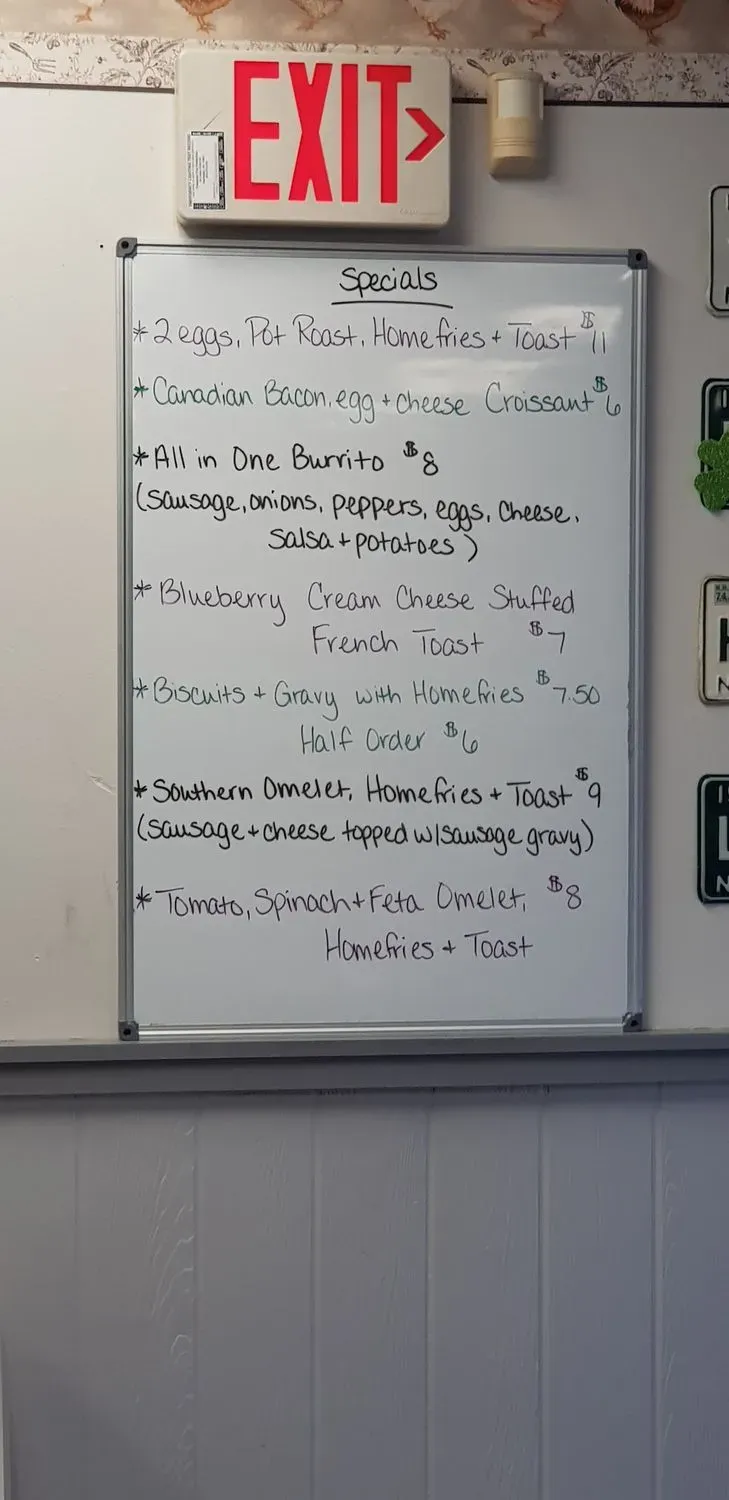 EXIT
Specials
* 2 eggs, Pot Roast, Homefries + Toast $11
* Canadian Bacon, egg + cheese Croissant $6
* All in One Burrito $8
(sausage, onions, peppers, eggs, cheese,
salsa + potatoes)
* Blueberry Cream Cheese Stuffed
French Toast $7
* Biscuits + Gravy with Homefries $7.50
Half Order $6
* Southern Omelet, Homefries + Toast $9
(sausage + cheese topped w/sausage gravy)
* Tomato, Spinach + Feta Omelet, $8
Homefries + Toast